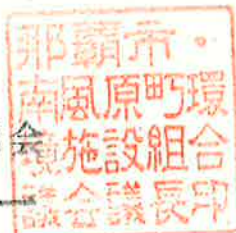 那覇市・
南風原町環
境施設組合
議会議長印
会